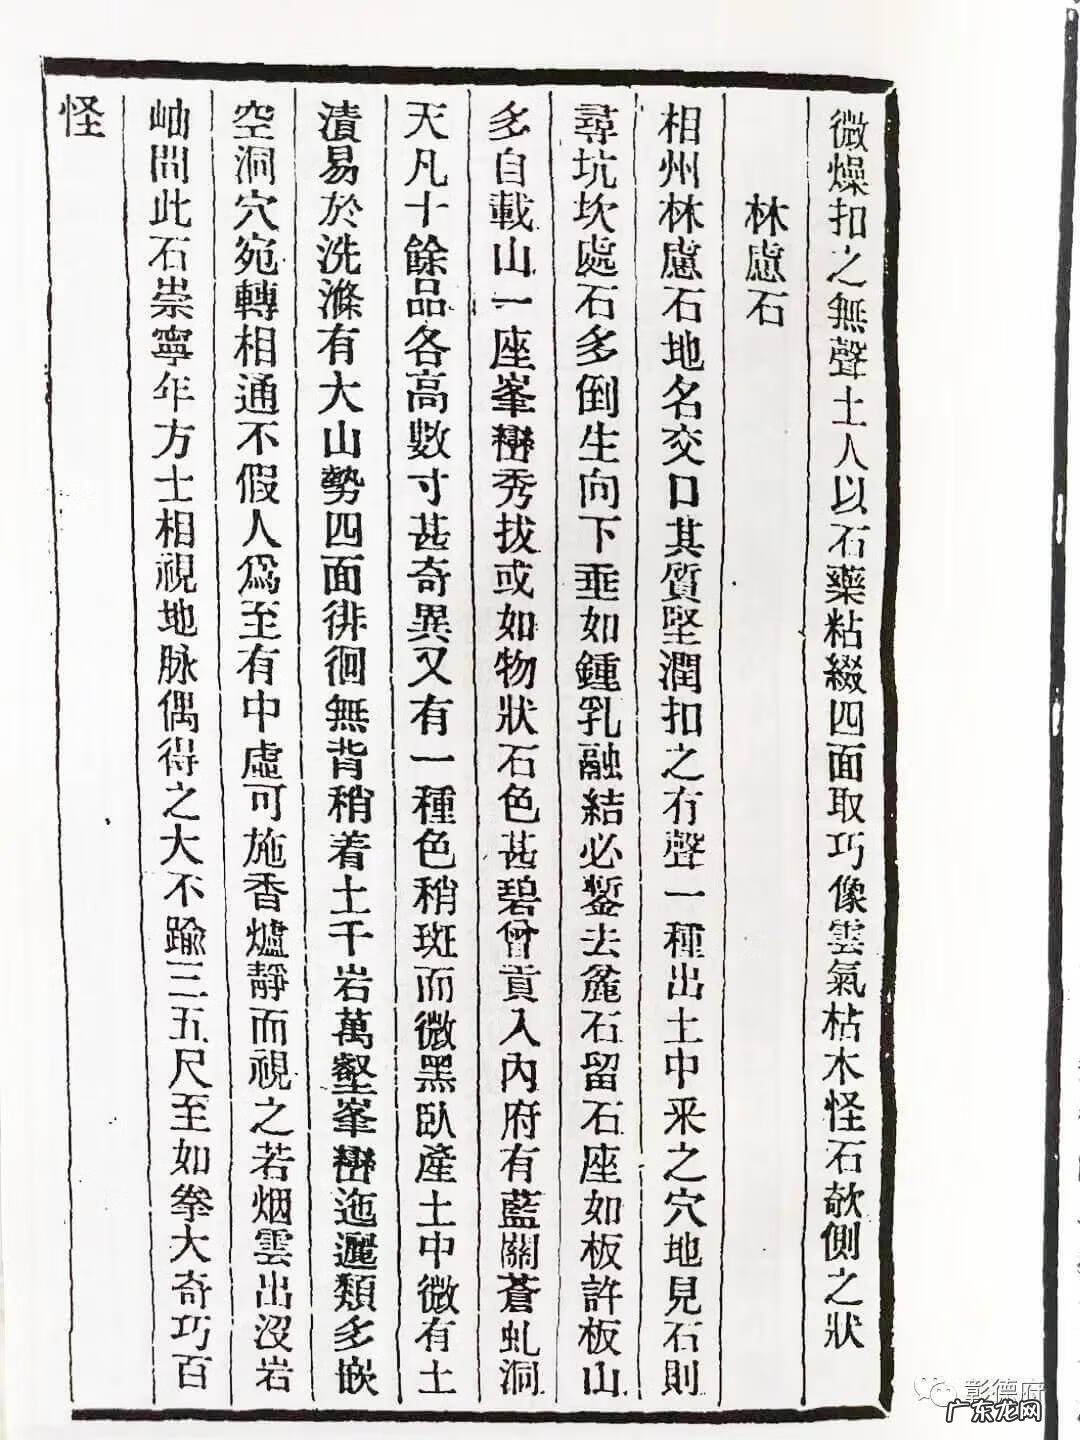 微燥扣之無聲土人以石藥粘綴四面取巧像雲氣枯木怪石欹側之狀
林慮石
相州林慮石地名交口其質堅潤扣之有聲一種出土中采之穴地見石則
尋坑坎處石多倒生向下垂如鍾乳融結必鏨去麄石留石座如板許板山
多自載山一座峯巒秀拔或如物狀石色甚碧曾貢入內府有藍關蒼虬洞
天凡十餘品各高數寸甚奇異又有一種色稍斑而微黑臥產土中微有土
漬易於洗滌有大山勢四面徘徊無背稍着土千岩萬壑峯巒迤邐類多嵌
空洞穴宛轉相通不假人爲至有中虛可施香爐靜而視之若烟雲出沒岩
岫間此石崇寧年方士相視地脉偶得之大不踰三五尺至如拳大奇巧百
怪
彰德府
广东龙网